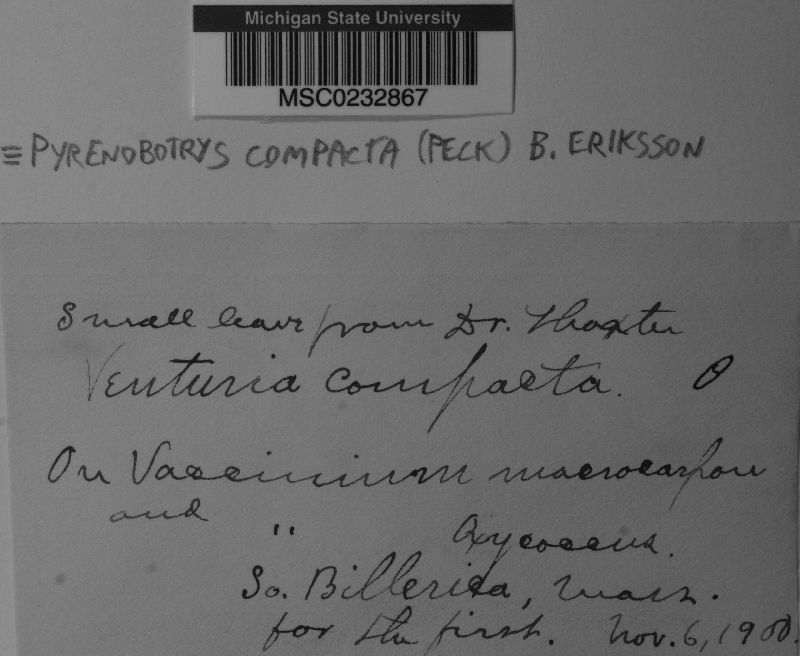 Michigan State University
MSC0232867
≡ PYRENOBOTRYS COMPACTA (PECK) B. ERIKSSON
Small leave from Dr. Thaxter
Venturia compacta. O
On Vaccinium macrocarpon
and " Oxycoccus.
So. Billerica, Mass.
for the first. Nov. 6, 1900.